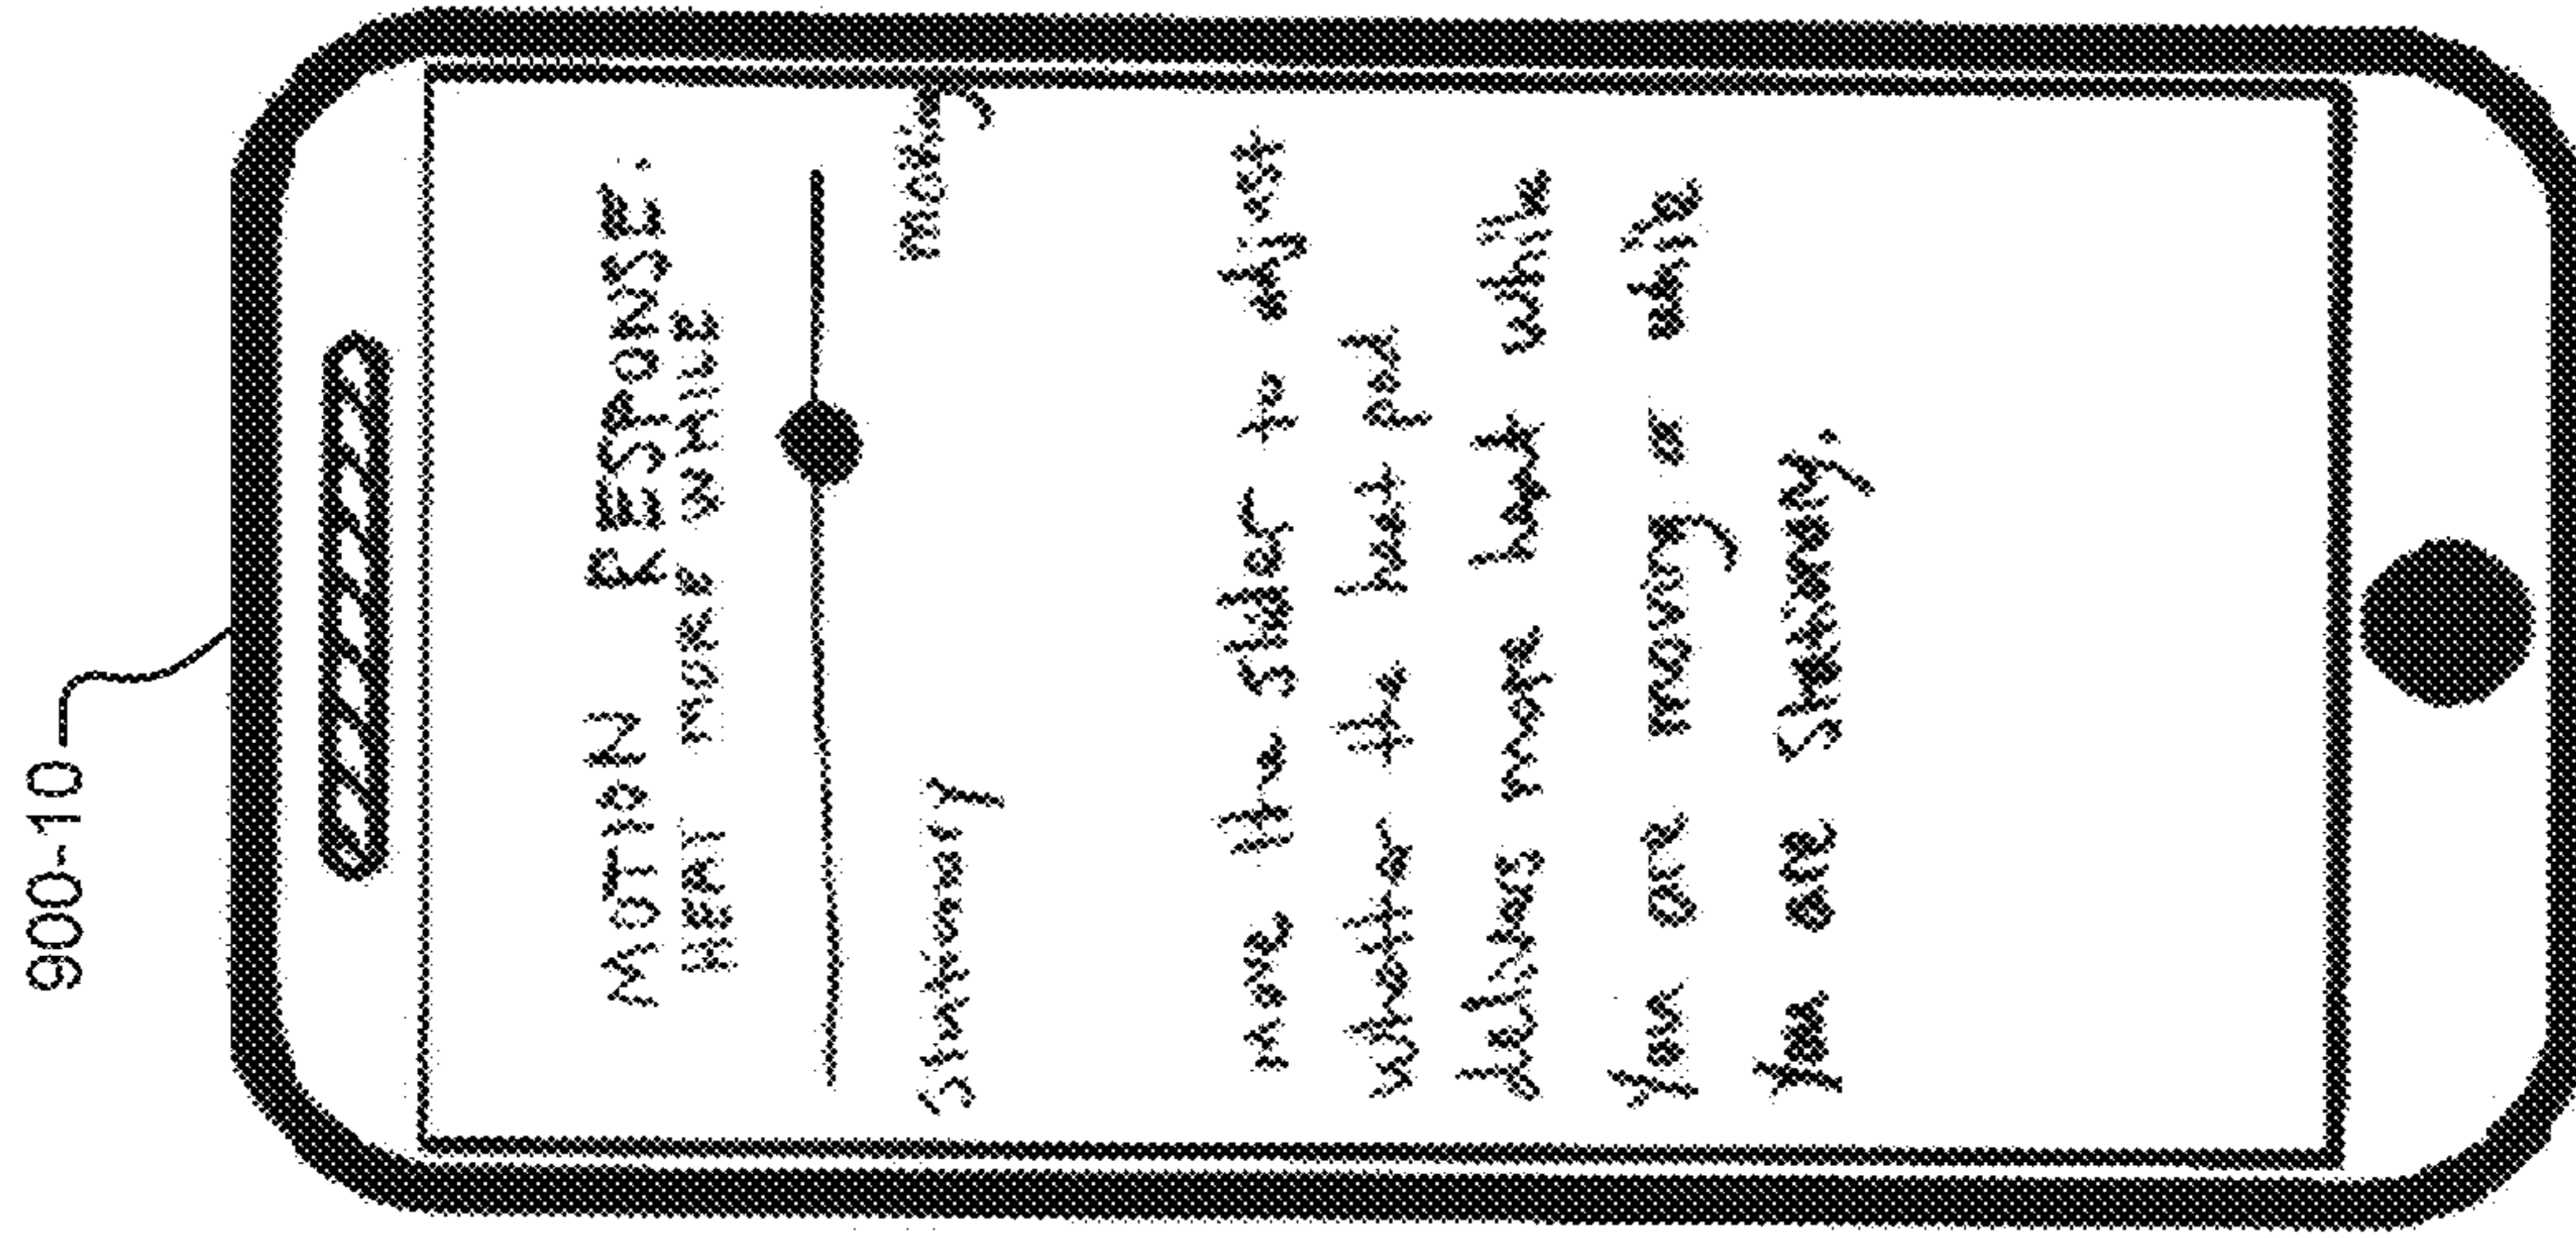 900-10
MOTION RESPONSE.
HEAT MORE WHILE
Stationary moving
move the Slider to adjust
whether the heat pad
delivers more heat while
you are moving or while
you are Stationary.